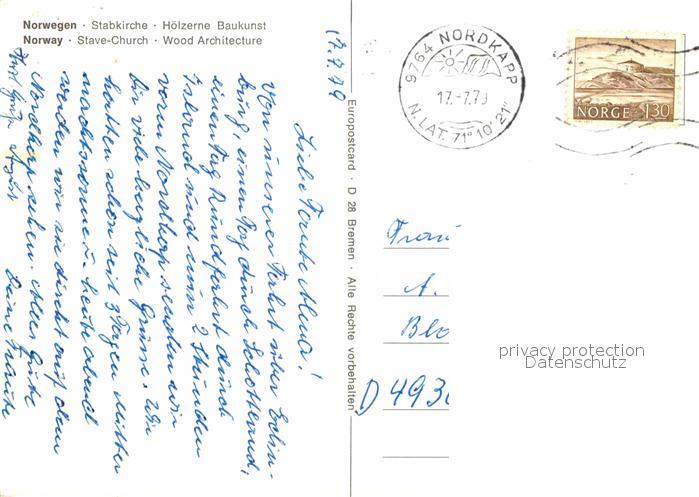 Norwegen · Stabkirche · Hölzerne Baukunst
Norway · Stave-Church · Wood Architecture
17.7.79
Liebe Tante Alma!
Von unserer Fahrt über Edin-
burg, einen Tag durch Schottland,
einen Tag Rundfahrt durch
Island und nun 2 Stunden
vorm Nordkap senden wir
Dir viele herzliche Grüsse. Wir
hatten schon seit 3 Tagen Mitter
nachtssonne u. heute abend
werden wir sie direkt auf dem
Nordkap sehen. Alles Gute
Deine Traute
Europostcard · D 28 Bremen · Alle Rechte vorbehalten
9764 NORDKAPP
17.-7.79
N. LAT. 71° 10' 21"
NORGE 130
Frau
A.
Blo
D 493
privacy protection
Datenschutz